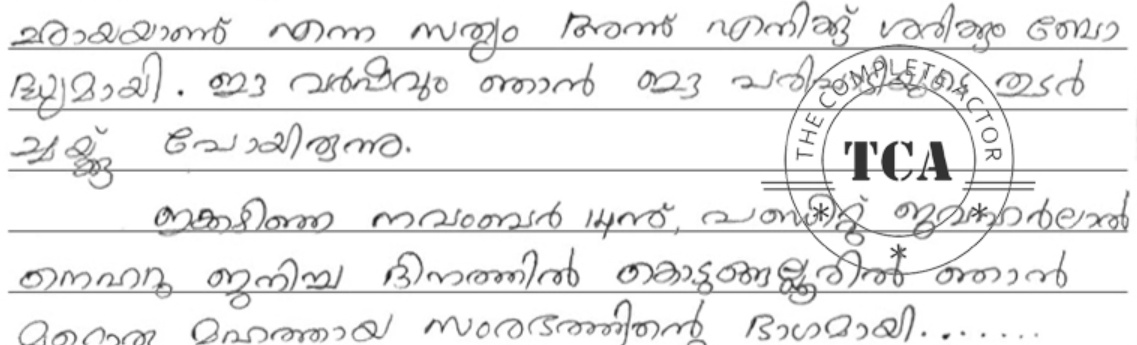 ചരായയാണ് എന്ന സത്യം അന്ന് എനിക്ക് ശരിക്കും ബോ
ദ്ധ്യമായി. ഈ വർഷവും ഞാൻ ഈ തുടർ
ച്ചയ്ക്ക് പോയിരുന്നു.
ഇക്കഴിഞ്ഞ നവംബർ 14ന്, പണ്ഡിറ്റ് ജവഹർലാൽ
നെഹറു ജനിച്ച ദിനത്തിൽ കൊടുങ്ങല്ലൂരിൽ ഞാൻ
മറ്റൊരു മഹത്തായ സംരഭത്തിന്റെ ഭാഗമായി.......
THE COMPLETE ACTOR
TCA